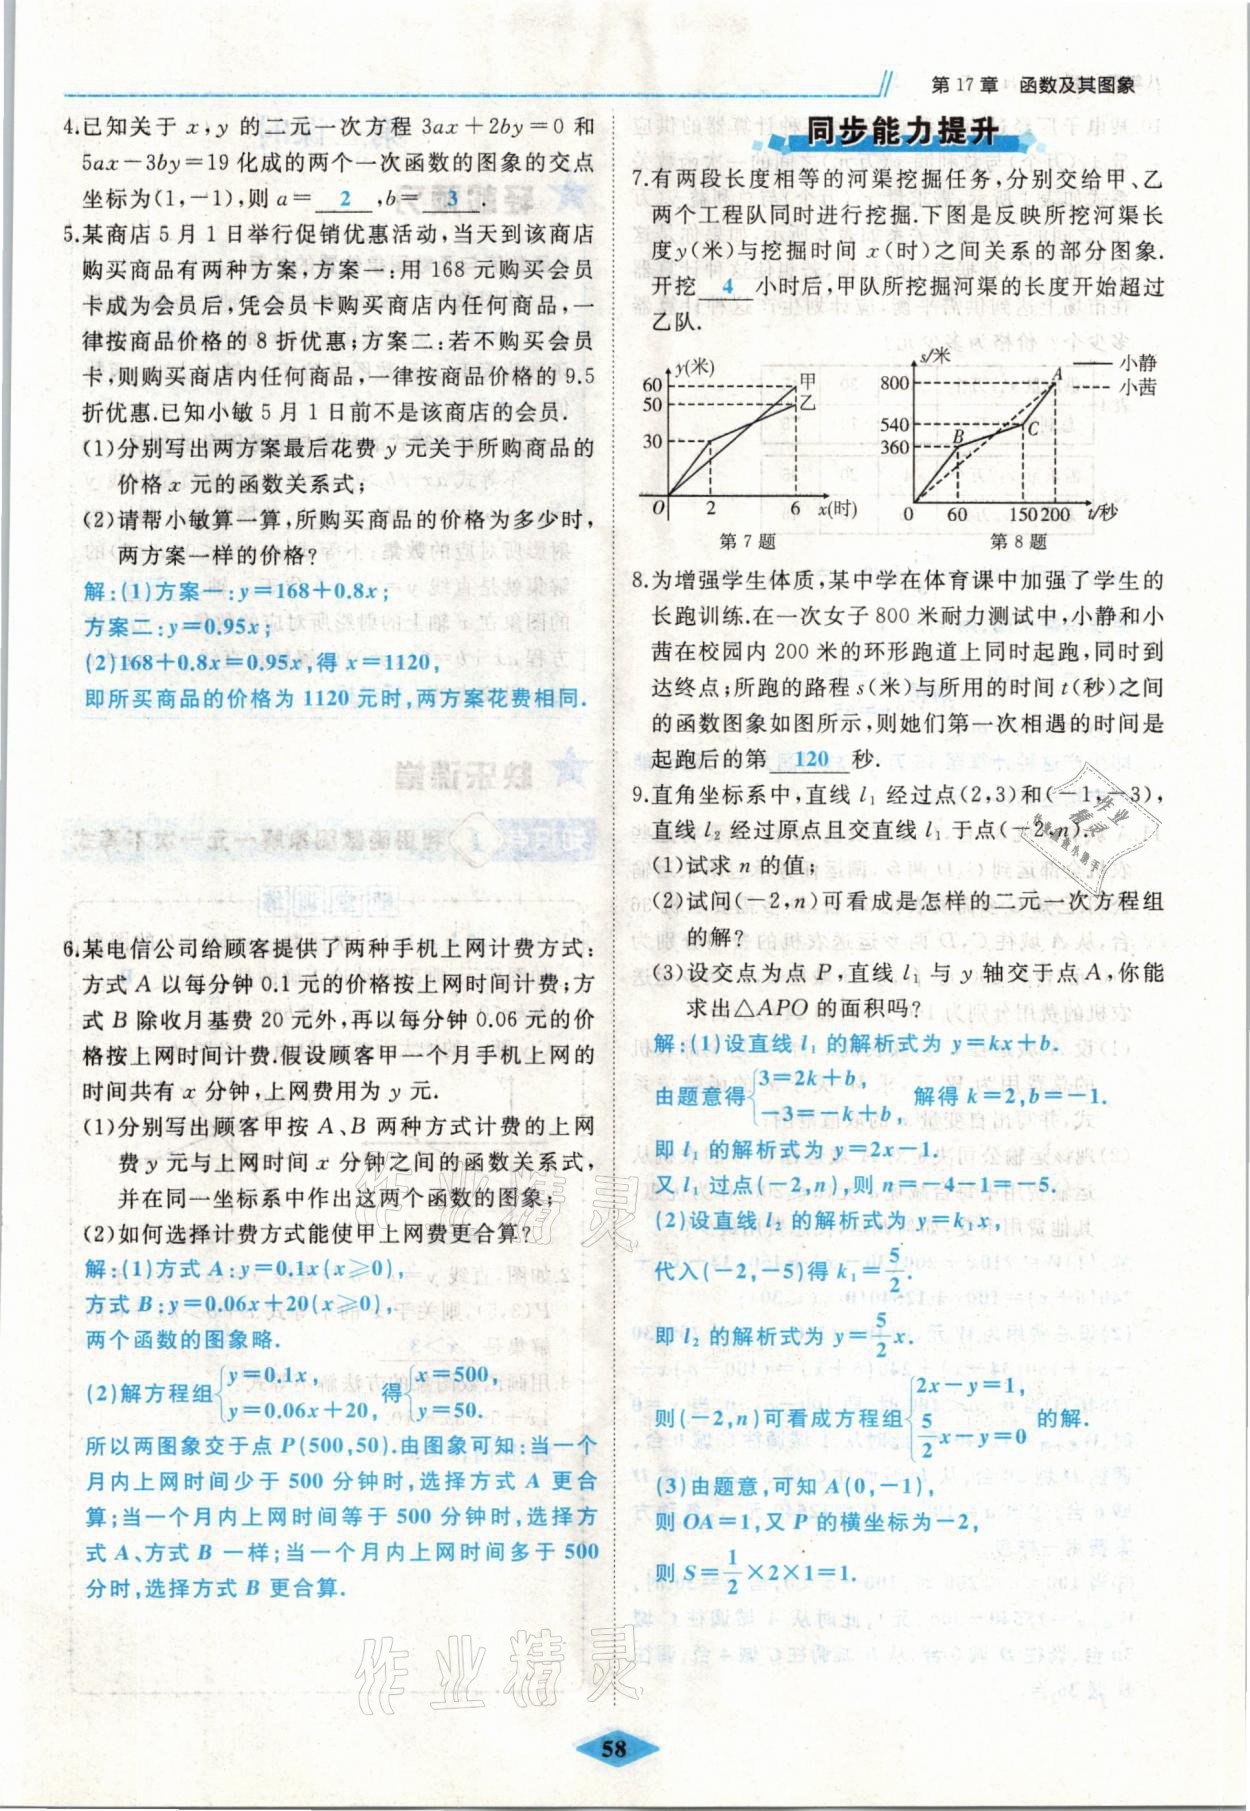 第 17 章　函数及其图象
4.已知关于 x,y 的二元一次方程 3ax+2by=0 和
5ax-3by=19 化成的两个一次函数的图象的交点
坐标为(1,-1),则 a= 2 ,b= 3 .
5.某商店 5 月 1 日举行促销优惠活动,当天到该商店
购买商品有两种方案,方案一:用 168 元购买会员
卡成为会员后,凭会员卡购买商店内任何商品,一
律按商品价格的 8 折优惠;方案二:若不购买会员
卡,则购买商店内任何商品,一律按商品价格的 9.5
折优惠.已知小敏 5 月 1 日前不是该商店的会员.
(1)分别写出两方案最后花费 y 元关于所购商品的
价格 x 元的函数关系式;
(2)请帮小敏算一算,所购买商品的价格为多少时,
两方案一样的价格?
解:(1)方案一:y=168+0.8x;
方案二:y=0.95x;
(2)168+0.8x=0.95x,得 x=1120,
即所买商品的价格为 1120 元时,两方案花费相同.
6.某电信公司给顾客提供了两种手机上网计费方式:
方式 A 以每分钟 0.1 元的价格按上网时间计费;方
式 B 除收月基费 20 元外,再以每分钟 0.06 元的价
格按上网时间计费.假设顾客甲一个月手机上网的
时间共有 x 分钟,上网费用为 y 元.
(1)分别写出顾客甲按 A、B 两种方式计费的上网
费 y 元与上网时间 x 分钟之间的函数关系式,
并在同一坐标系中作出这两个函数的图象;
(2)如何选择计费方式能使甲上网费更合算?
解:(1)方式 A:y=0.1x(x≥0),
方式 B:y=0.06x+20(x≥0),
两个函数的图象略.
(2)解方程组{y=0.1x, y=0.06x+20, 得{x=500, y=50.
所以两图象交于点 P(500,50).由图象可知:当一个
月内上网时间少于 500 分钟时,选择方式 A 更合
算;当一个月内上网时间等于 500 分钟时,选择方
式 A、方式 B 一样;当一个月内上网时间多于 500
分钟时,选择方式 B 更合算.
同步能力提升
7.有两段长度相等的河渠挖掘任务,分别交给甲、乙
两个工程队同时进行挖掘.下图是反映所挖河渠长
度 y(米)与挖掘时间 x(时)之间关系的部分图象.
开挖 4 小时后,甲队所挖掘河渠的长度开始超过
乙队.
y(米)
60
50
30
甲
乙
O 2 6 x(时)
第 7 题
s/米
800
540
360
A
B
C
小静
小茜
0 60 150 200 t/秒
第 8 题
8.为增强学生体质,某中学在体育课中加强了学生的
长跑训练.在一次女子 800 米耐力测试中,小静和小
茜在校园内 200 米的环形跑道上同时起跑,同时到
达终点;所跑的路程 s(米)与所用的时间 t(秒)之间
的函数图象如图所示,则她们第一次相遇的时间是
起跑后的第 120 秒.
9.直角坐标系中,直线 l₁ 经过点(2,3)和(-1,-3),
直线 l₂ 经过原点且交直线 l₁ 于点(-2,n).
(1)试求 n 的值;
(2)试问(-2,n)可看成是怎样的二元一次方程组
的解?
(3)设交点为点 P,直线 l₁ 与 y 轴交于点 A,你能
求出△APO 的面积吗?
解:(1)设直线 l₁ 的解析式为 y=kx+b.
由题意得{3=2k+b, -3=-k+b, 解得 k=2,b=-1.
即 l₁ 的解析式为 y=2x-1.
又 l₁ 过点(-2,n),则 n=-4-1=-5.
(2)设直线 l₂ 的解析式为 y=k₁x,
代入(-2,-5)得 k₁=5/2.
即 l₂ 的解析式为 y=5/2x.
则(-2,n)可看成方程组{2x-y=1, 5/2x-y=0 的解.
(3)由题意,可知 A(0,-1),
则 OA=1,又 P 的横坐标为-2,
则 S=1/2×2×1=1.
作业精灵
作业精灵
58